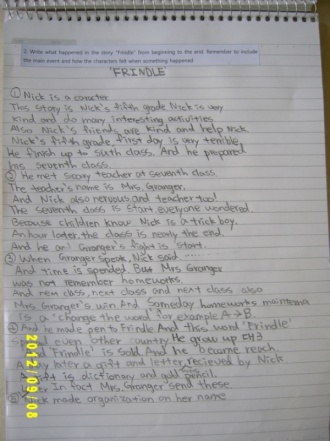 2. Write what happened in the story "Frindle" from beginning to the end. Remember to include
the main event and how the characters felt when something happened
"FRINDLE"
① Nick is a caracter
This story is Nick's fifth grade Nick is very
kind and do many interesting activities
Also Nick's friends are kind and help Nick.
Nick's fifth grade first day is very terrible
He finish up to sixth class. And he prepared
his seventh class.
② He met scary teacher at seventh class.
The teacher's name is Mrs. Granger.
And Nick also nervous and teacher too!
The seventh class is start everyone wondered.
Because children know Nick is a trick boy.
An hour later the class is nearly the end.
And he and Granger's fight is start.
③ When Granger speak, Nick said ......
And time is spended. But Mrs Granger
was not remember homeworks.
And next class, next class and next class also
Mrs Granger's win And Someday homeworks
is a "change the word" for example A → B.
④ And he made pen to Frindle And this word 'Frindle'
even other country He grow up
And Frindle is sold And he became reach.
later a gift and letter recieved by Nick
gift is dictionary and pencil.
In fact Mrs. Granger send these
⑤ Nick made organization on her name
2012/09/08